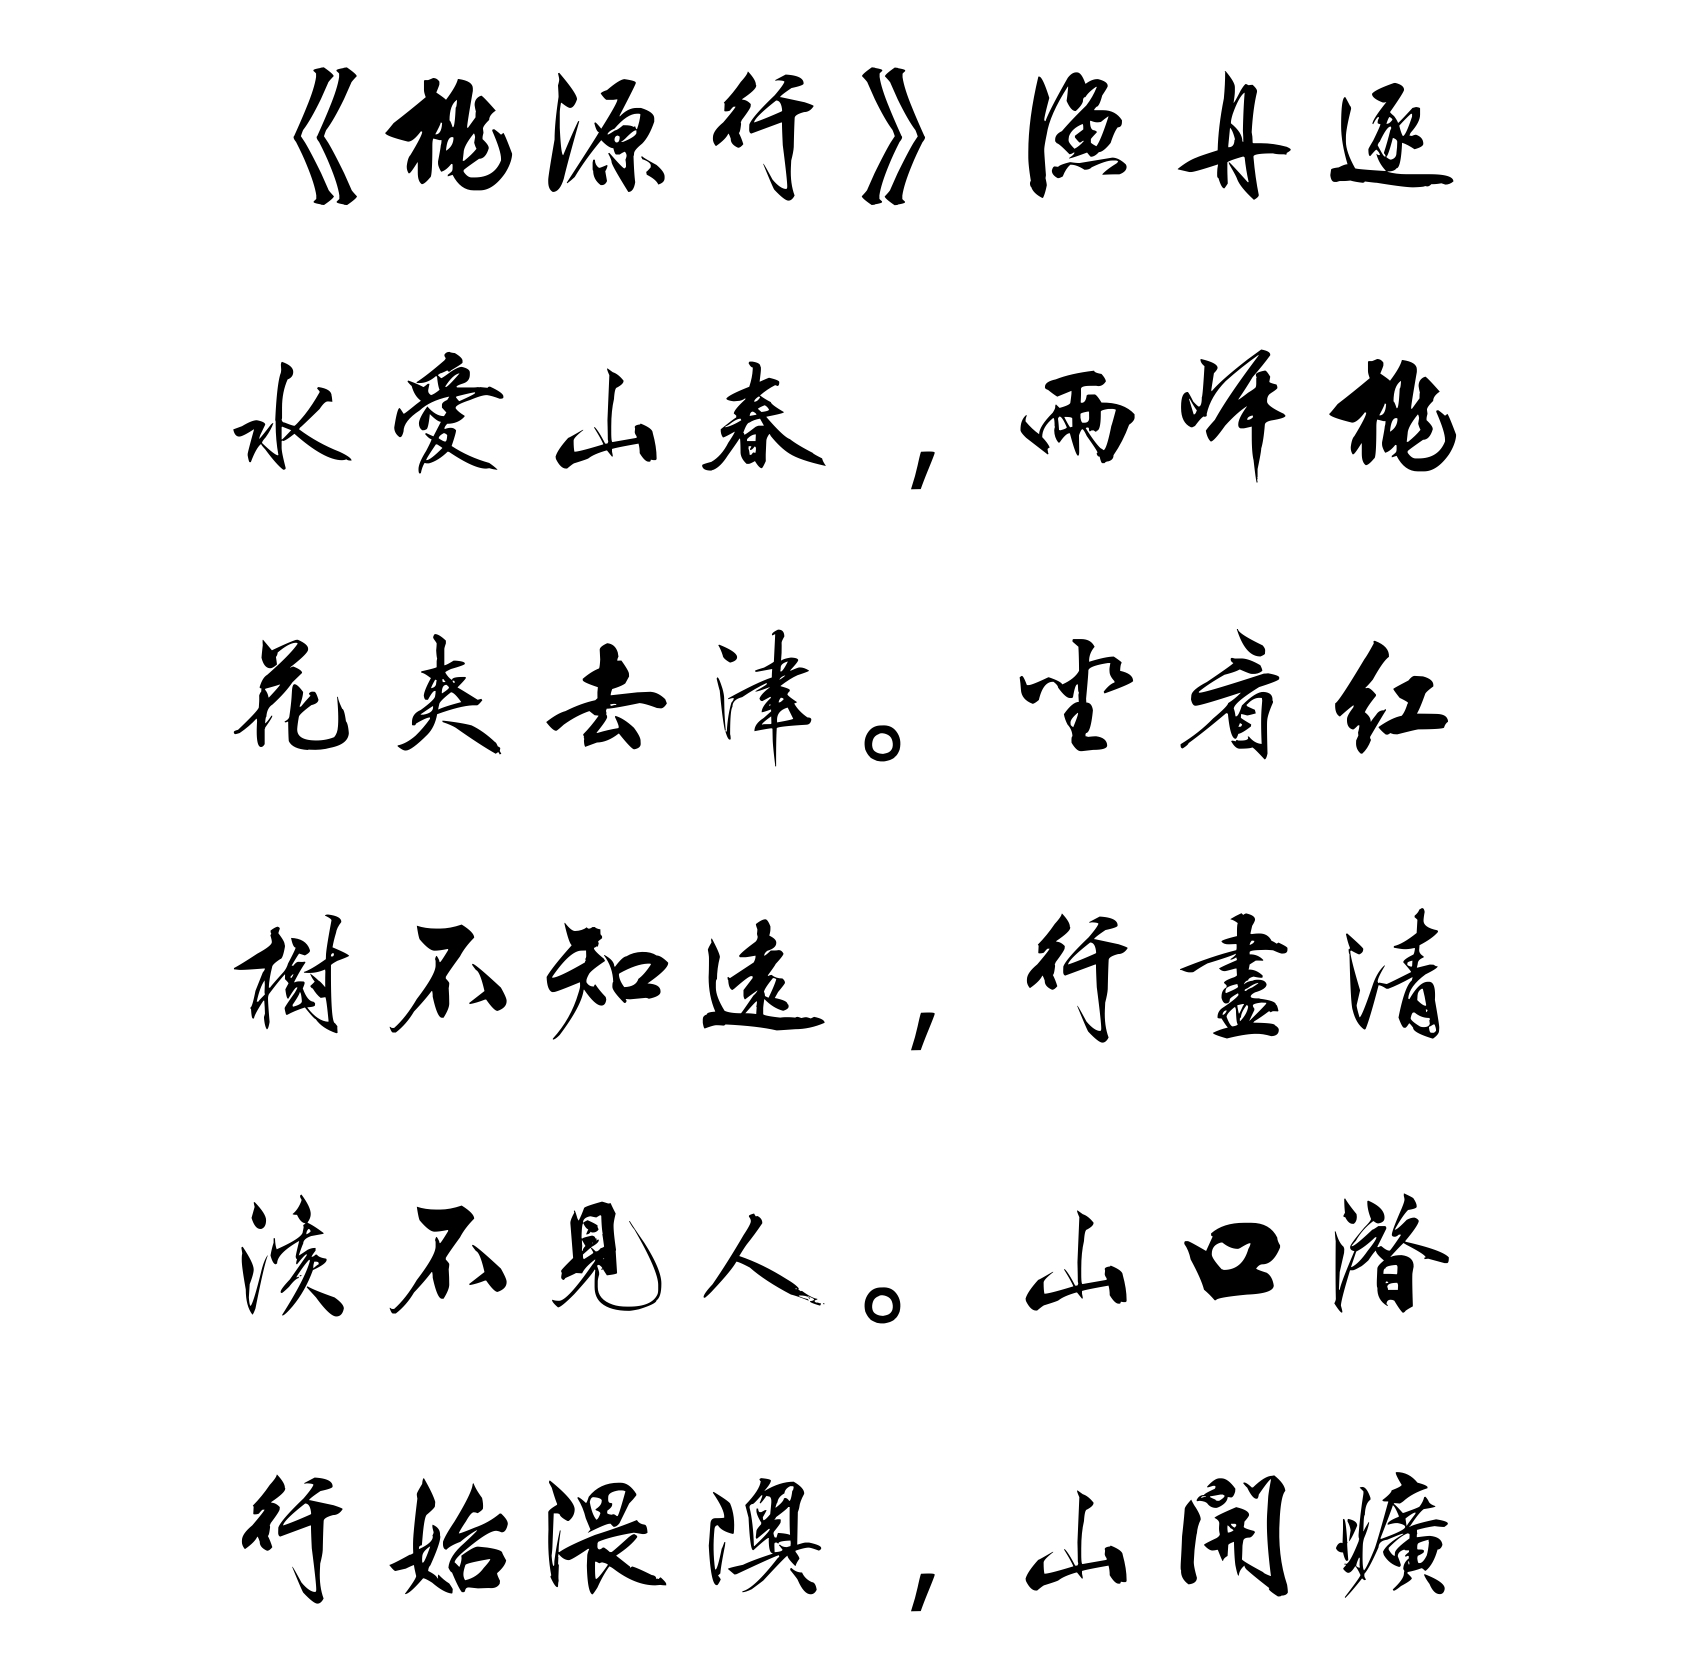 《桃源行》漁舟逐
水愛山春，兩岸桃
花夾去津。坐看紅
樹不知遠，行盡清
溪不見人。山口潛
行始隈隩，山開曠